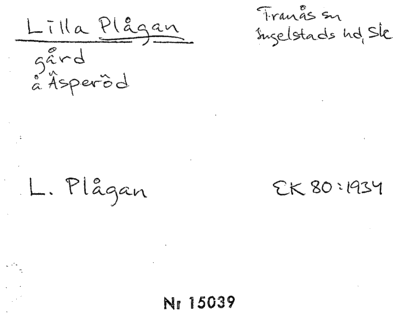 Lilla Plågan
Tranås sn
Ingelstads hd, Sk
gård
å Äsperöd
L. Plågan
EK 80:1934
Nr 15039